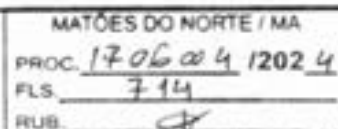 MATÕES DO NORTE / MA
PROC. 1706004 /2024
FLS. 714
RUB.